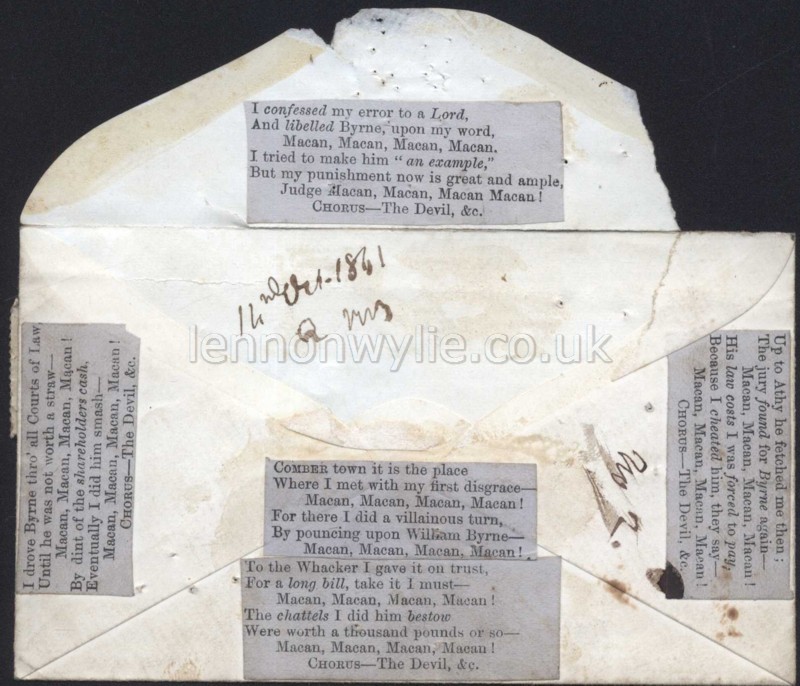 I confessed my error to a Lord,
And libelled Byrne, upon my word,
Macan, Macan, Macan, Macan.
I tried to make him "an example,"
But my punishment now is great and ample,
Judge Macan, Macan, Macan Macan!
CHORUS—The Devil, &c.
Oct. 1861
lennonwylie.co.uk
I drove Byrne thro' all Courts of Law
Until he was not worth a straw—
Macan, Macan, Macan, Macan!
By dint of the shareholders cash,
Eventually I did him smash—
Macan, Macan, Macan, Macan!
CHORUS—The Devil, &c.
Up to Athy he fetched me then;
The jury found for Byrne again—
Macan, Macan, Macan, Macan!
His law costs I was forced to pay,
Because I cheated him, they say—
Macan, Macan, Macan, Macan!
CHORUS—The Devil, &c.
No 2.
COMBER town it is the place
Where I met with my first disgrace—
Macan, Macan, Macan, Macan!
For there I did a villainous turn,
By pouncing upon William Byrne—
Macan, Macan, Macan, Macan!
To the Whacker I gave it on trust,
For a long bill, take it I must—
Macan, Macan, Macan, Macan!
The chattels I did him bestow
Were worth a thousand pounds or so—
Macan, Macan, Macan, Macan!
CHORUS—The Devil, &c.